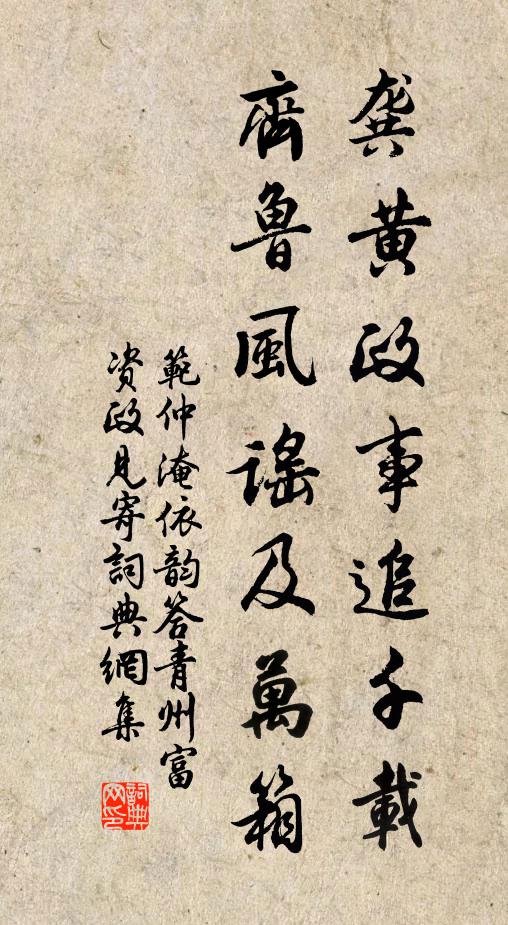 龔黄政事追千載
齊魯風謠及萬箱
範仲淹依韵答青州富
資政見寄詞典網集
詞典网印